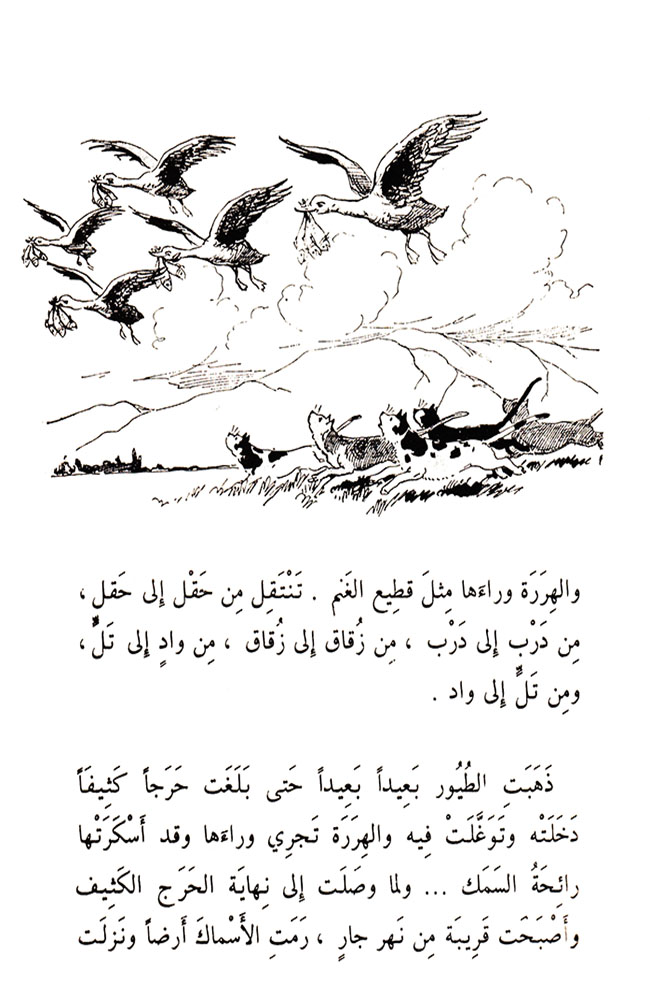 والهِرَرَة وراءَها مِثلَ قطِيع الغَنم . تَنْتَقِل مِن حَقْل إِلى حَقل ،
مِن دَرْبٍ إِلى دَرْب ، مِن زُقاق إِلى زُقاق ، مِن وادٍ إِلى تَلٍّ ،
ومِن تَلٍّ إِلى واد .
ذَهَبَتِ الطُيُور بَعِيداً بَعِيداً حَتى بَلَغَت حَرَجاً كَثِيفَاً
دَخَلَتْه وتَوَغَّلَتْ فِيه والهِرَرَة تَجرِي وراءَها وقد أَسْكَرَتْها
رائِحَةُ السَمَك ... ولما وصَلَت إِلى نِهايَة الحَرَج الكَثِيف
وأَصْبَحَت قَرِيبَة مِن نَهر جارٍ ، رَمَتِ الأَسْماكَ أَرضاً ونَزلَت